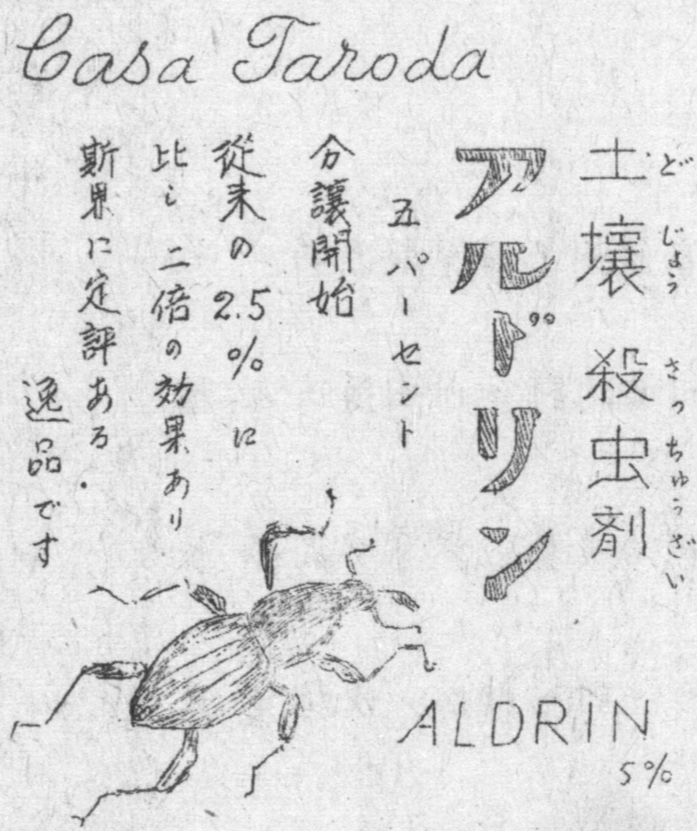 Casa Taroda
土壌 殺虫剤
どじょう さっちゅうざい
アルドリン
五パーセント
分譲開始
従来の2.5%に
比し 二倍の効果あり
斯界に定評ある.
逸品です
ALDRIN
5%